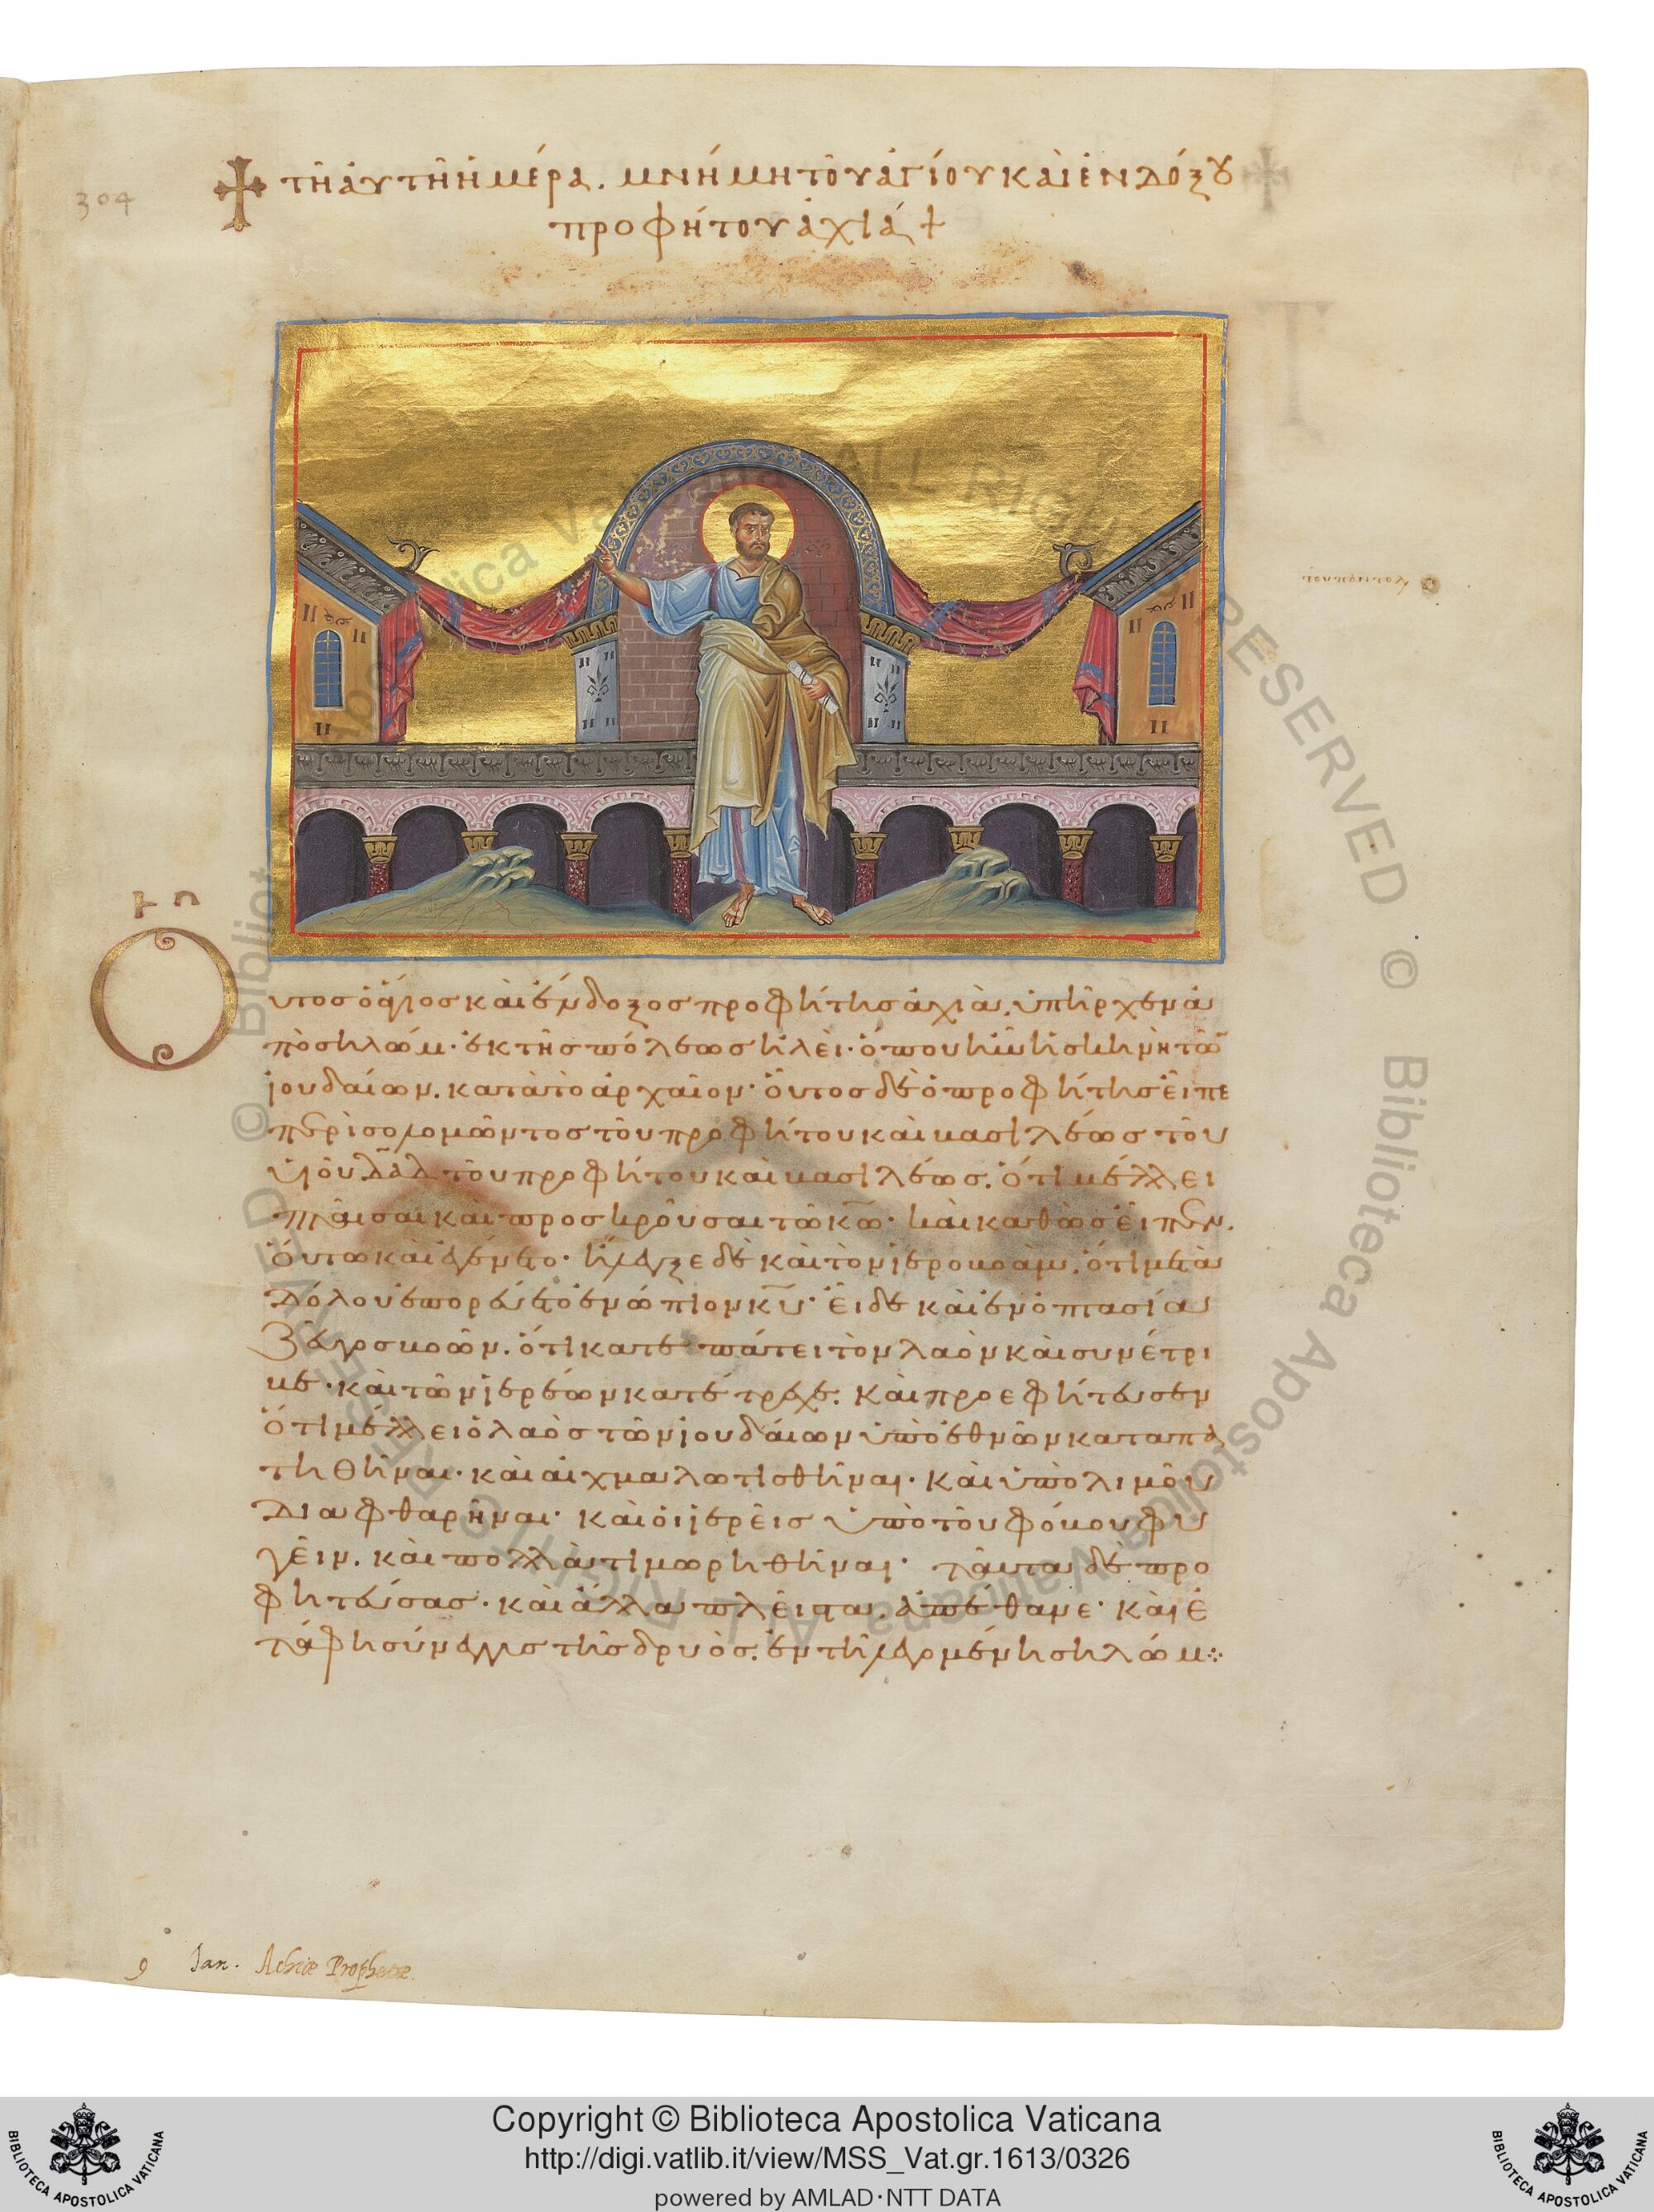 304
+ τῆ ἀυτῆ ἡμέρα. μνήμη τοῦ ἁγίου καὶ ἐνδόξου
προφήτου ἀχιά +
Οὗτος ὁ ἅγιος καὶ ἔνδοξος προφήτης ἀχιὰ, ὑπῆρχεν ἀ
πὸ σηλώμ· ἐκ τῆς πόλεως ἠλεὶ· ὅπου ἦν ἡ σκηνὴ τῶν
ἰουδαίων. κατὰ τὸ ἀρχαῖον· οὗτος δὲ ὁ προφήτης εἶπε
περὶ σολομῶντος τοῦ προφήτου καὶ βασιλέως τοῦ
υἱοῦ δαδ τοῦ προφήτου καὶ βασιλέως. ὅτι μέλλει
πταῖσαι καὶ προσκροῦσαι τῶ κω· καὶ καθὼς εἶπεν.
οὕτω καὶ ἐγένετο· ἤλεγξε δὲ καὶ τὸν ἱεροβοὰμ. ὅτι μετὰ
δόλου ἐπορεύετο ἐνώπιον κυ· εἶδε καὶ ἐν ὀπτασία
ζεῦγος βοῶν. ὅτι κατεπάτει τὸν λαὸν καὶ συνέτρι
βε· καὶ τῶν ἱερέων κατέτρεχε. καὶ προεφήτευσεν
ὅτι μέλλει ὁ λαὸς τῶν ἰουδαίων ὑπὸ ἐθνῶν καταπα
τηθῆναι· καὶ αἰχμαλωτισθῆναι· καὶ ὑπὸ λιμοῦ
διαφθαρῆναι· καὶ οἱ ἱερεῖς ὑπὸ τοῦ φόβου φυ
γεῖν. καὶ πολλὰ τιμωρηθῆναι· ταῦτα δὲ προ
φητεύσας· καὶ ἄλλα πλεῖστα, ἀπέθανε· καὶ ἐ
τάφη σύνεγγυς τῆς δρυὸς. ἐν τῆ λεγομένη σηλώμ
9 Jan. Achiæ Prophetæ.
© Biblioteca Apostolica Vaticana ALL RIGHTS RESERVED © Biblioteca Apostolica Vaticana ALL RIGHTS RESERVED
Copyright © Biblioteca Apostolica Vaticana
http://digi.vatlib.it/view/MSS_Vat.gr.1613/0326
powered by AMLAD·NTT DATA
BIBLIOTECA APOSTOLICA VATICANA
BIBLIOTECA APOSTOLICA VATICANA